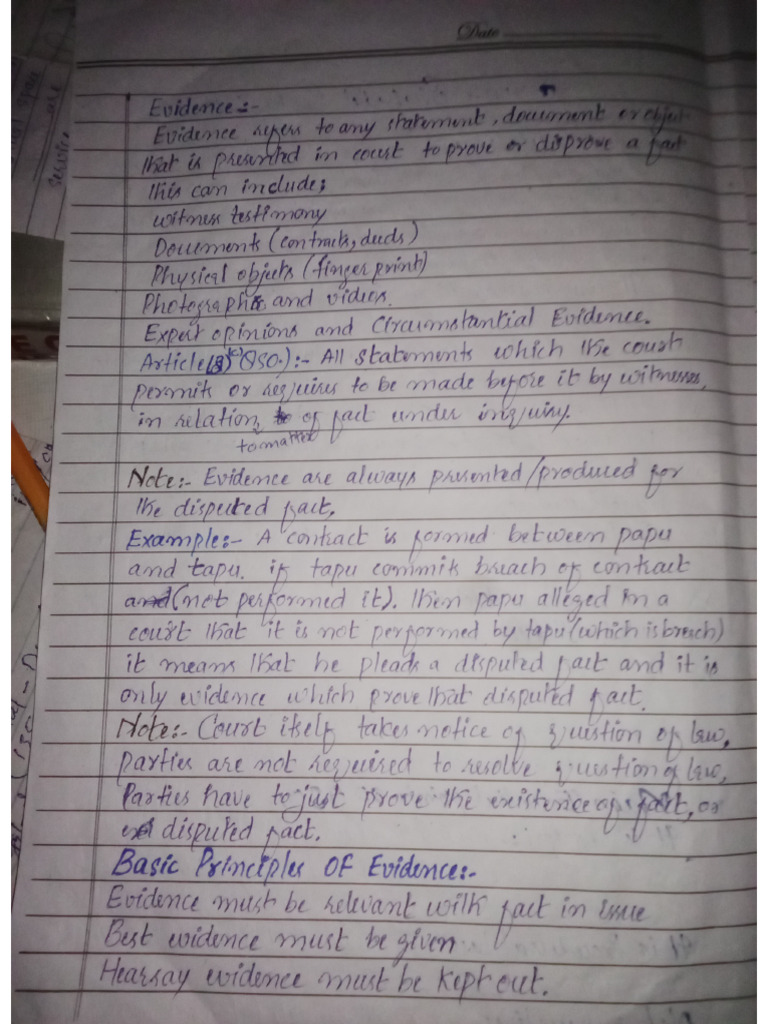 Date
Evidence:-
Evidence refers to any statement, document or object
that is presented in court to prove or disprove a fact
this can include;
witness testimony
Documents (contracts, deeds)
Physical objects (finger print)
Photographs and videos.
Expert opinions and Circumstantial Evidence.
Article(2)(c)(QSO.):- All statements which the court
permits or requires to be made before it by witnesses,
in relation of fact under inquiry.
to matter
Note:- Evidence are always presented/produced for
the disputed fact.
Example:- A contract is formed between papu
and tapu. if tapu commits breach of contract
(not performed it). then papu alleged in a
court that it is not performed by tapu (which is breach)
it means that he pleads a disputed fact and it is
only evidence which prove that disputed fact.
Note:- Court itself takes notice of question of law,
parties are not required to resolve question of law,
Parties have to just prove the existence of fact, or
disputed fact.
Basic Principles OF Evidence:-
Evidence must be relevant with fact in issue
Best evidence must be given
Hearsay evidence must be kept out.